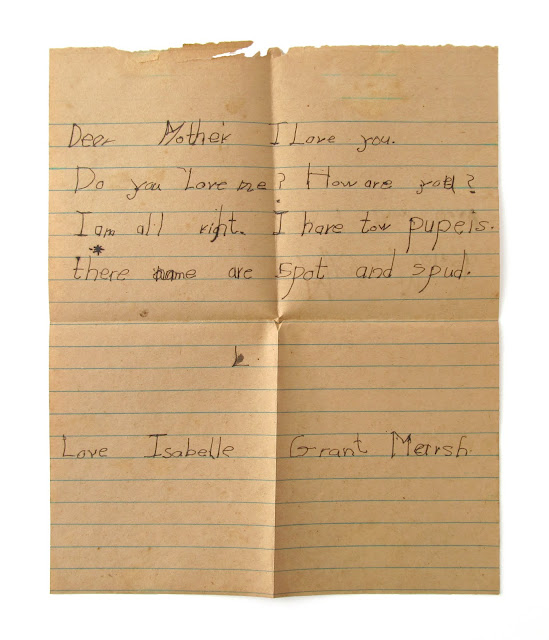 Deer Mother I Love you.
Do you Love me? How are you?
I am all right. I have tow pupeis.
there name are spot and spud.
Love Isabelle Grant Marsh